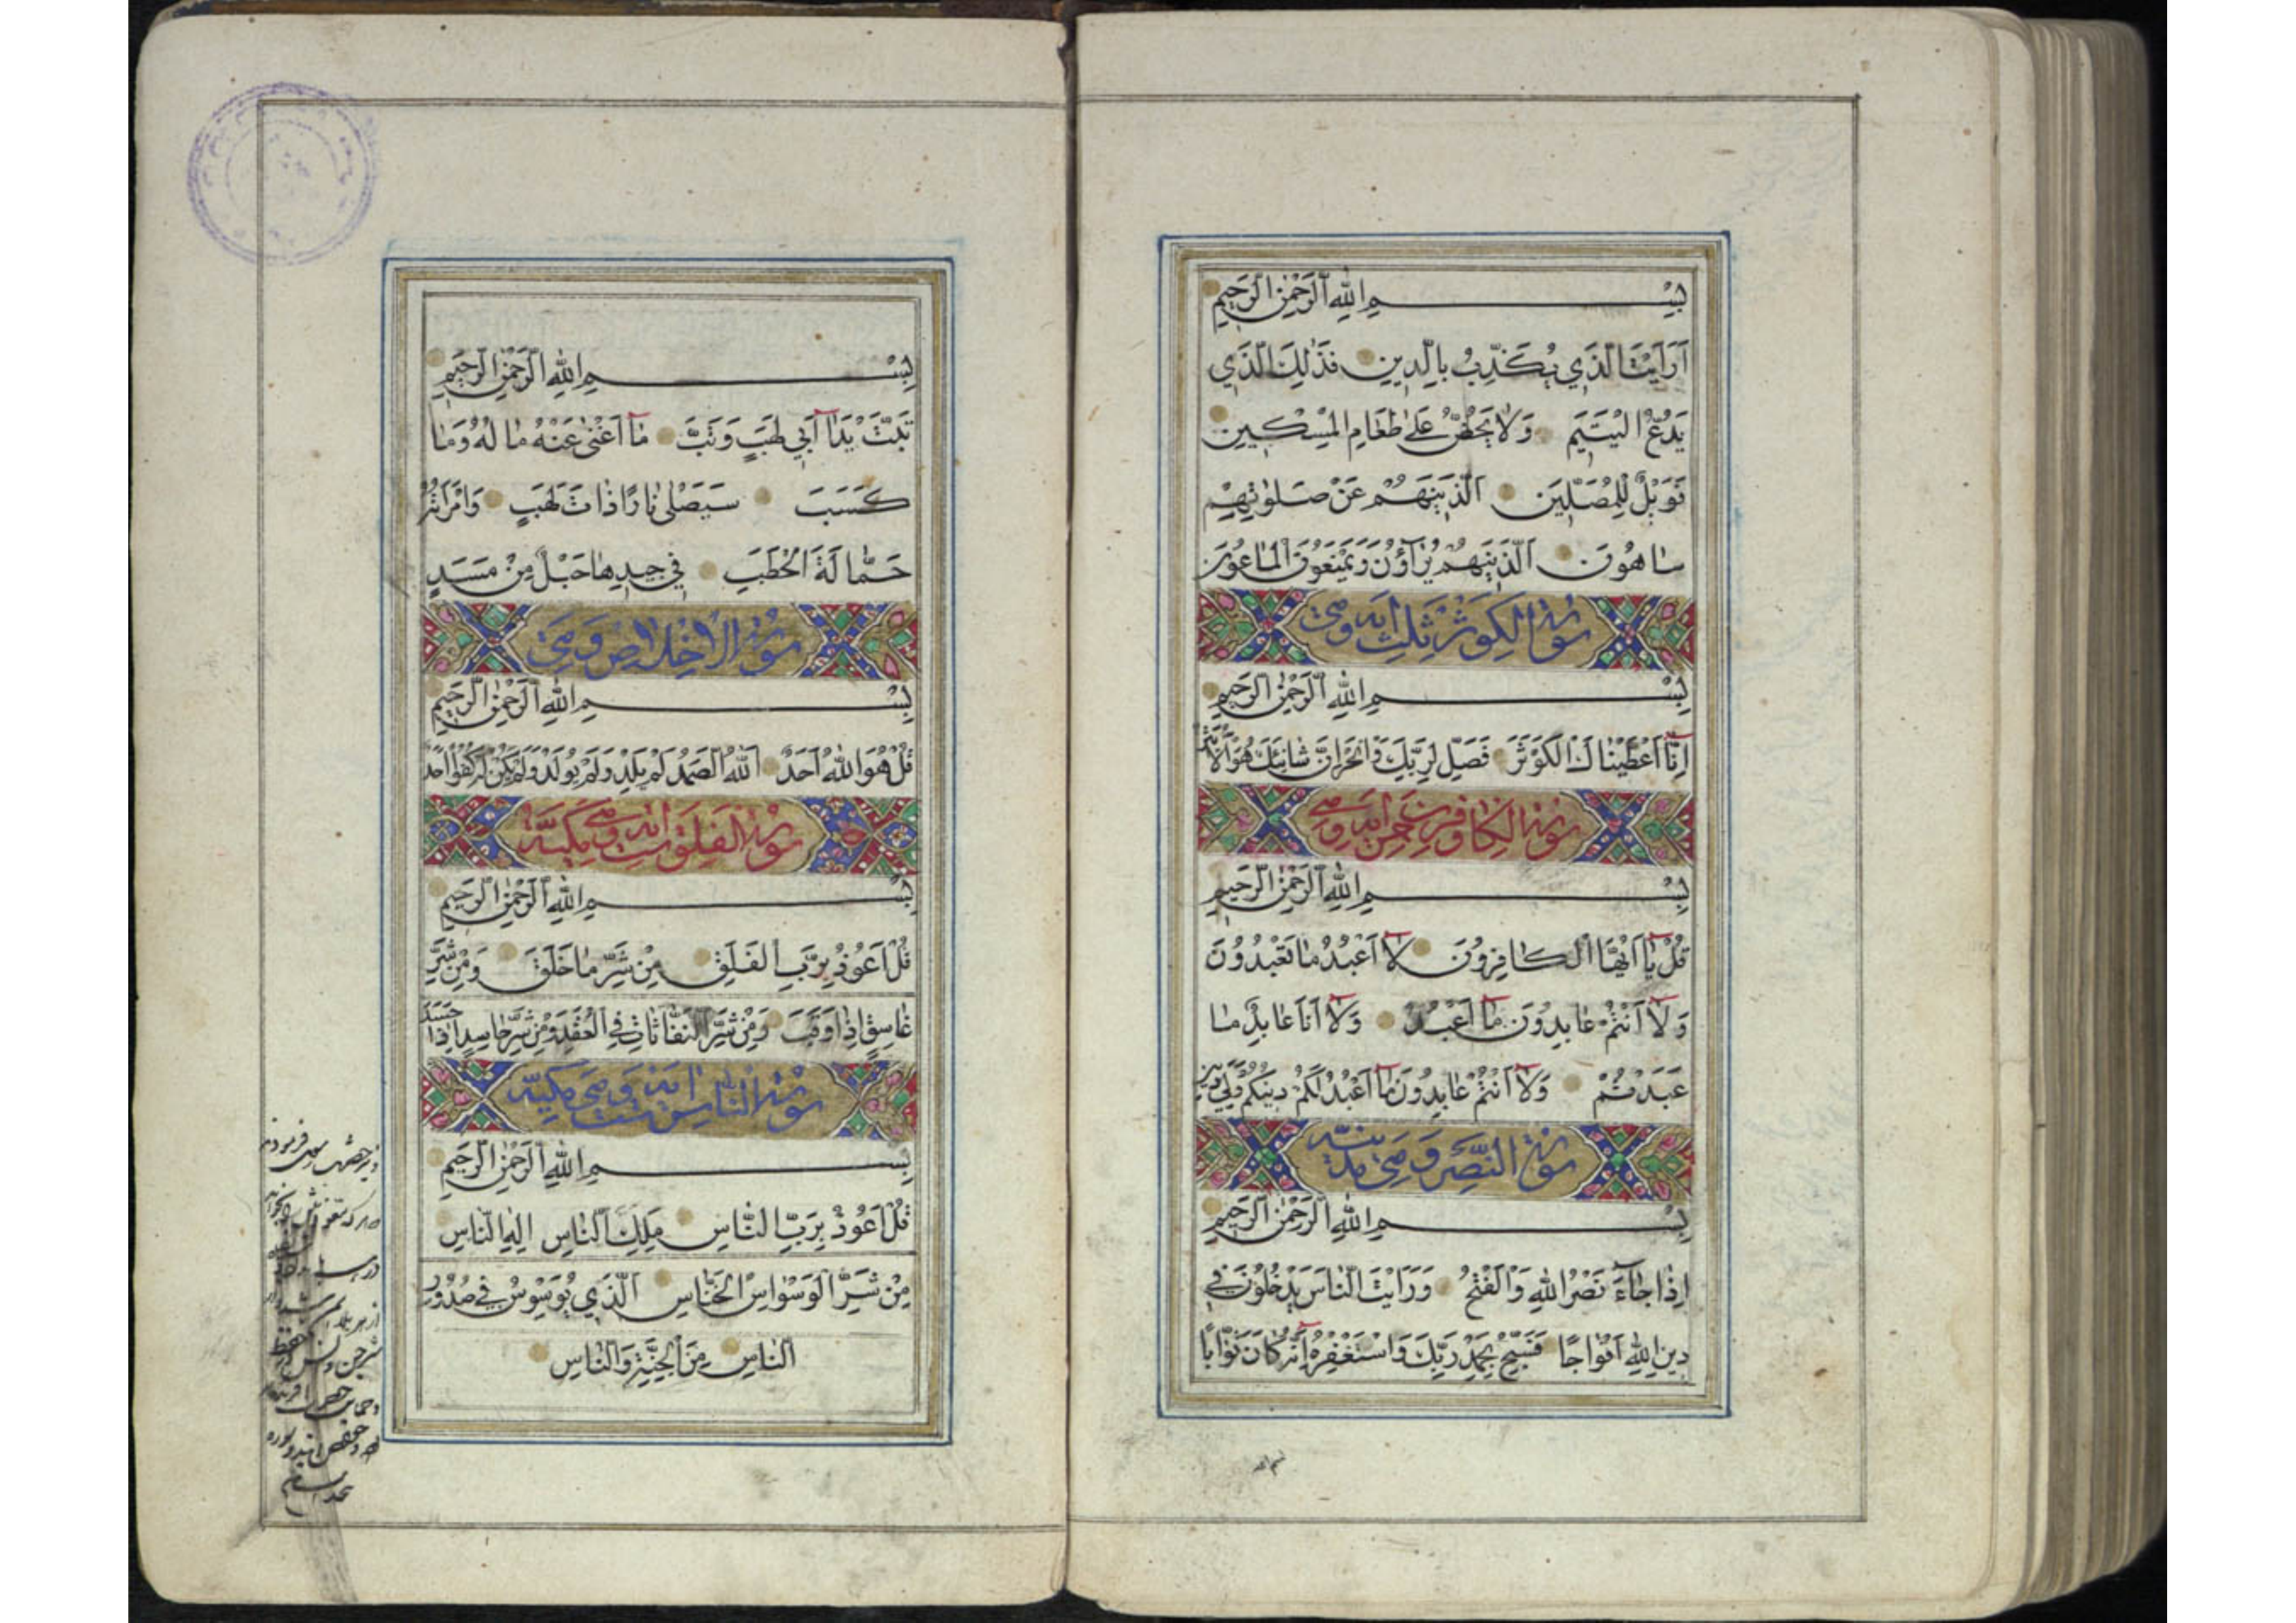 بِسْمِ اللهِ الرَّحْمٰنِ الرَّحِيمِ
اَرَاَيْتَ الَّذِي يُكَذِّبُ بِالدِّينِ فَذٰلِكَ الَّذِي
يَدُعُّ الْيَتِيمَ وَلَا يَحُضُّ عَلٰى طَعَامِ الْمِسْكِينِ
فَوَيْلٌ لِلْمُصَلِّينَ الَّذِينَهُمْ عَنْ صَلٰوتِهِمْ
سَاهُونَ الَّذِينَهُمْ يُرَآؤُنَ وَيَمْنَعُونَ الْمَاعُونَ
سورة الكوثر ثلث اية وهي
بِسْمِ اللهِ الرَّحْمٰنِ الرَّحِيمِ
اِنَّا اَعْطَيْنَاكَ الْكَوْثَرَ فَصَلِّ لِرَبِّكَ وَانْحَرْ اِنَّ شَانِئَكَ هُوَ الْاَبْتَرُ
سورة الكافرون خمس اية وهي
بِسْمِ اللهِ الرَّحْمٰنِ الرَّحِيمِ
قُلْ يَا اَيُّهَا الْكَافِرُونَ لَا اَعْبُدُ مَا تَعْبُدُونَ
وَلَا اَنْتُمْ عَابِدُونَ مَا اَعْبُدُ وَلَا اَنَا عَابِدٌ مَا
عَبَدْتُمْ وَلَا اَنْتُمْ عَابِدُونَ مَا اَعْبُدُ لَكُمْ دِينُكُمْ وَلِيَ دِينِ
سورة النصر وهي مدنية
بِسْمِ اللهِ الرَّحْمٰنِ الرَّحِيمِ
اِذَا جَآءَ نَصْرُ اللهِ وَالْفَتْحُ وَرَاَيْتَ النَّاسَ يَدْخُلُونَ فِي
دِينِ اللهِ اَفْوَاجًا فَسَبِّحْ بِحَمْدِ رَبِّكَ وَاسْتَغْفِرْهُ اِنَّهُ كَانَ تَوَّابًا
بِسْمِ اللهِ الرَّحْمٰنِ الرَّحِيمِ
تَبَّتْ يَدَا اَبِي لَهَبٍ وَتَبَّ مَا اَغْنٰى عَنْهُ مَالُهُ وَمَا
كَسَبَ سَيَصْلٰى نَارًا ذَاتَ لَهَبٍ وَامْرَاَتُهُ
حَمَّالَةَ الْحَطَبِ فِي جِيدِهَا حَبْلٌ مِنْ مَسَدٍ
سورة الاخلاص وهي
بِسْمِ اللهِ الرَّحْمٰنِ الرَّحِيمِ
قُلْ هُوَ اللهُ اَحَدٌ اَللهُ الصَّمَدُ لَمْ يَلِدْ وَلَمْ يُولَدْ وَلَمْ يَكُنْ لَهُ كُفُوًا اَحَدٌ
سورة الفلق اية وهي مكية
بِسْمِ اللهِ الرَّحْمٰنِ الرَّحِيمِ
قُلْ اَعُوذُ بِرَبِّ الْفَلَقِ مِنْ شَرِّ مَا خَلَقَ وَمِنْ شَرِّ
غَاسِقٍ اِذَا وَقَبَ وَمِنْ شَرِّ النَّفَّاثَاتِ فِي الْعُقَدِ وَمِنْ شَرِّ حَاسِدٍ اِذَا حَسَدَ
سورة الناس ست اية وهي مكية
بِسْمِ اللهِ الرَّحْمٰنِ الرَّحِيمِ
قُلْ اَعُوذُ بِرَبِّ النَّاسِ مَلِكِ النَّاسِ اِلٰهِ النَّاسِ
مِنْ شَرِّ الْوَسْوَاسِ الْخَنَّاسِ اَلَّذِي يُوَسْوِسُ فِي صُدُورِ
النَّاسِ مِنَ الْجِنَّةِ وَالنَّاسِ